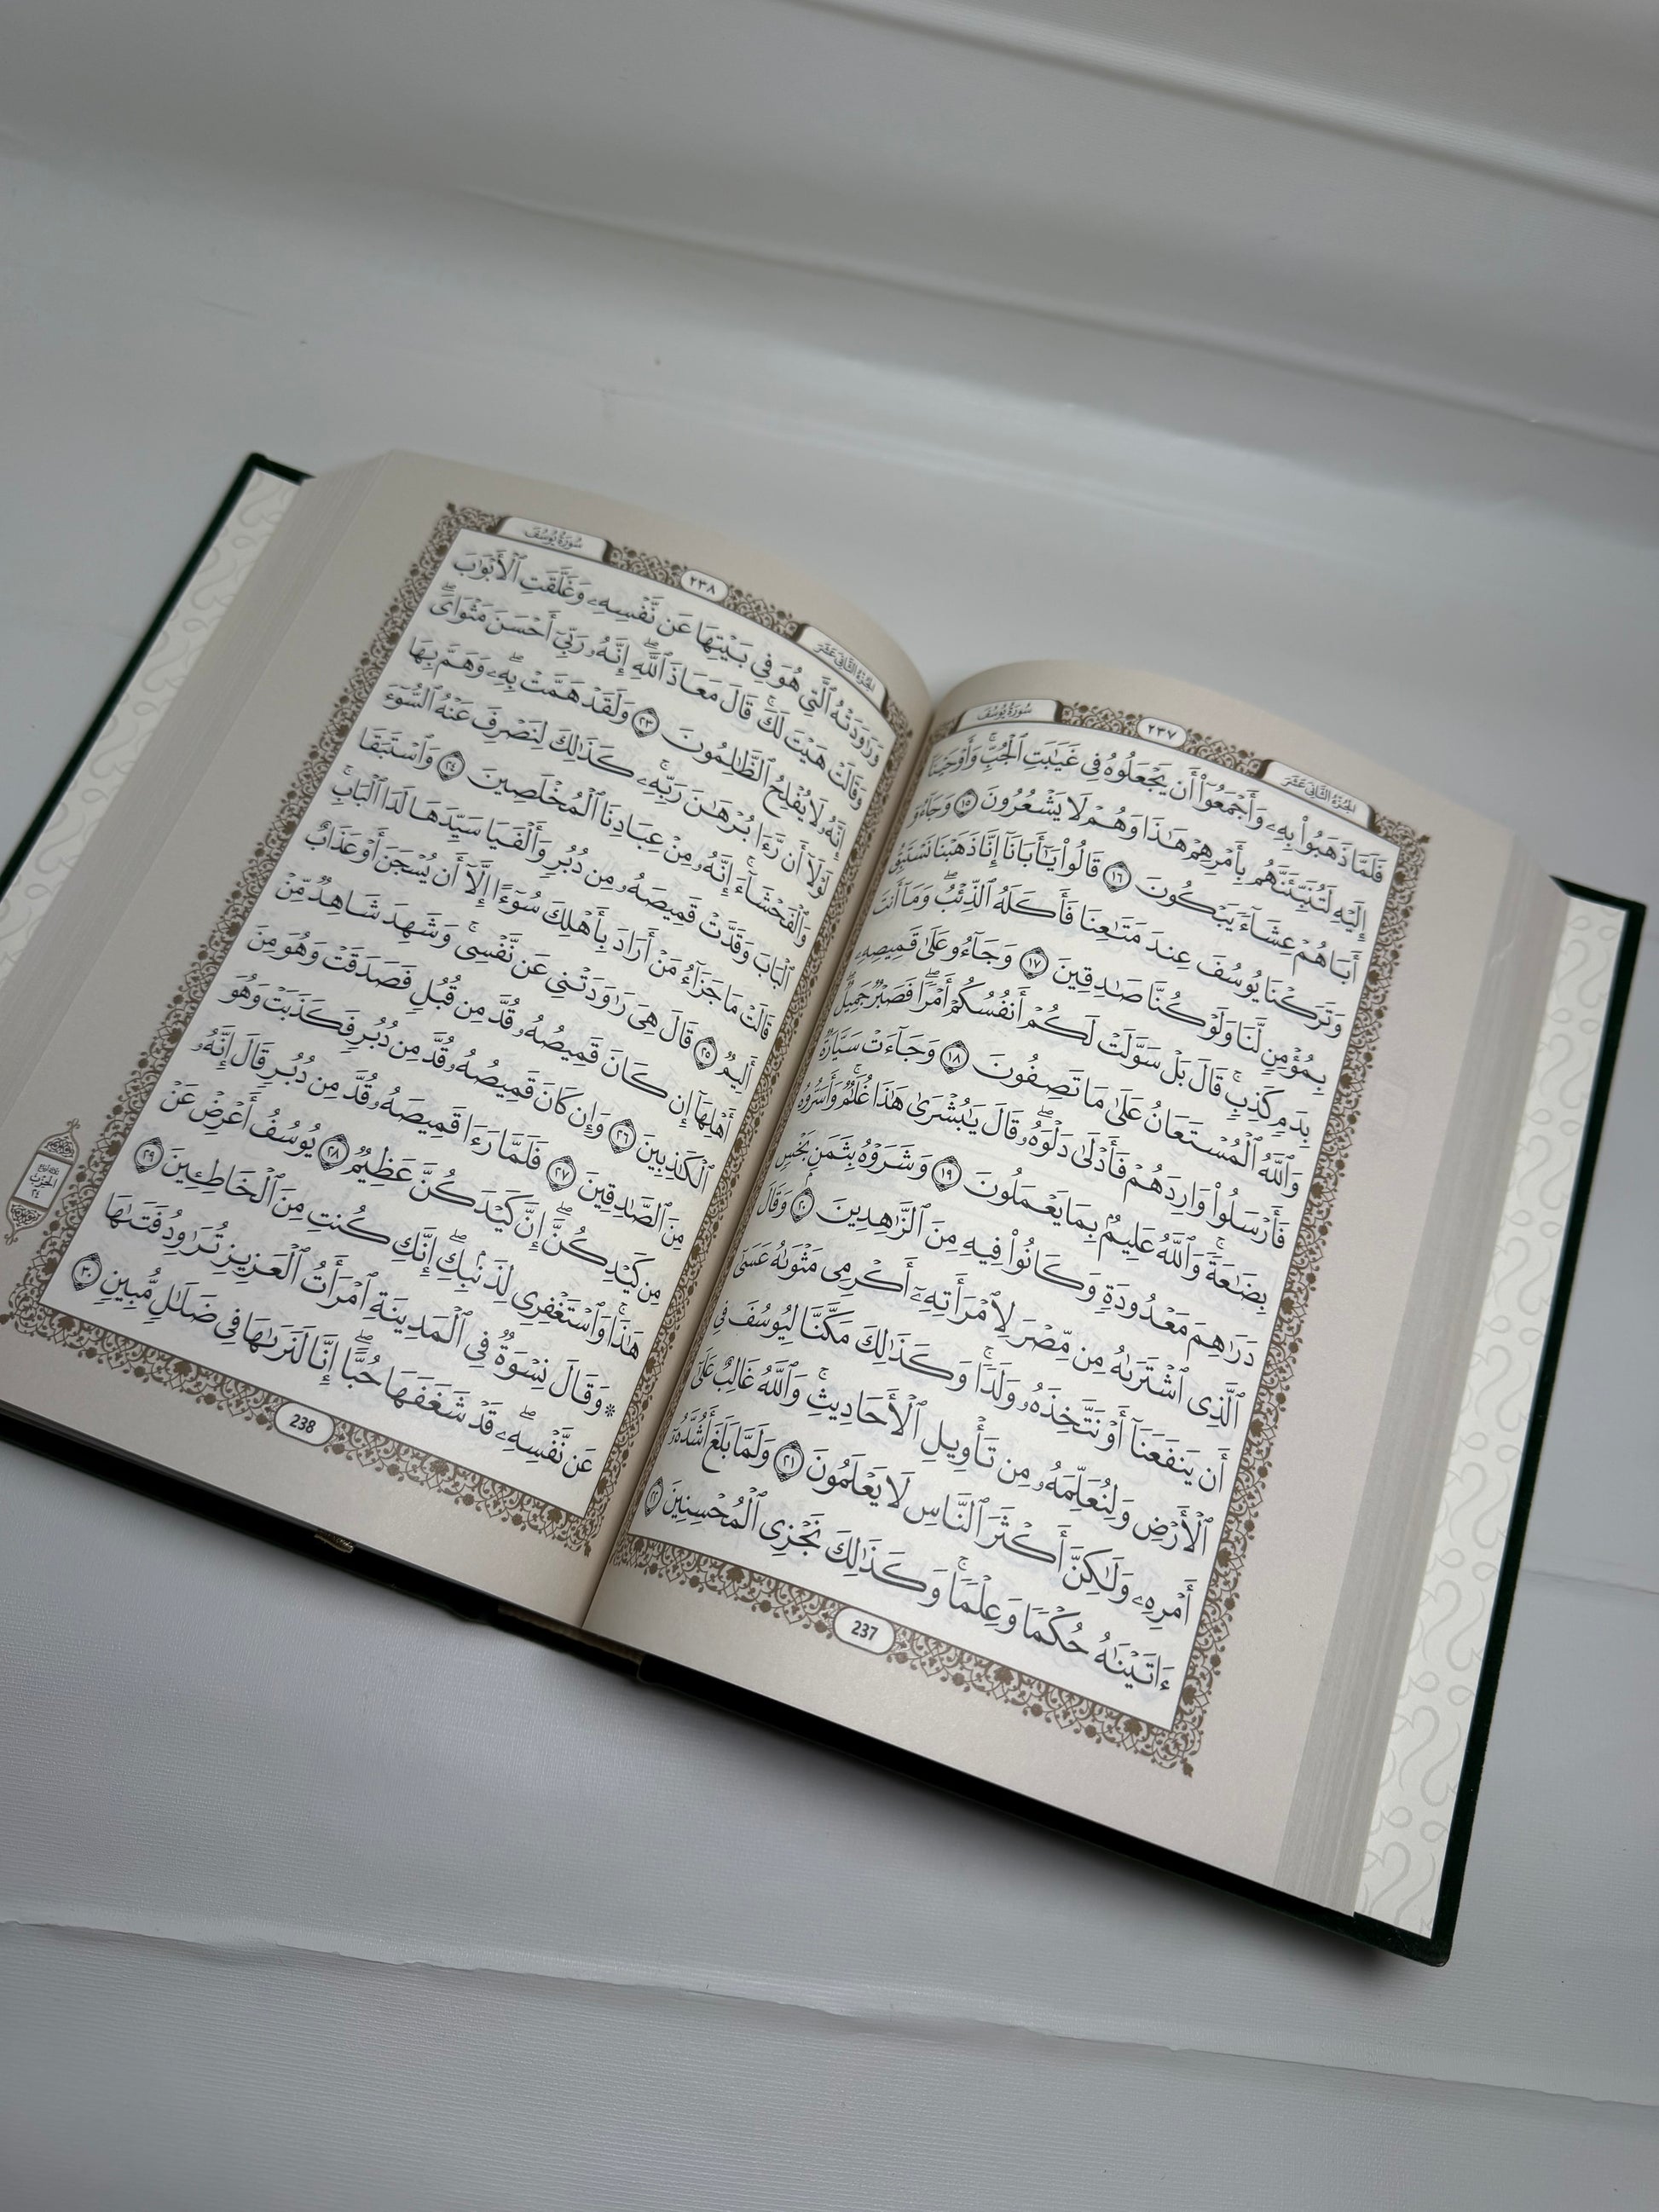 الجزء الثاني عشر
٢٣٧
سورة يوسف
فَلَمَّا ذَهَبُوا۟ بِهِۦ وَأَجْمَعُوٓا۟ أَن يَجْعَلُوهُ فِى غَيَـٰبَتِ ٱلْجُبِّ ۚ وَأَوْحَيْنَآ
إِلَيْهِ لَتُنَبِّئَنَّهُم بِأَمْرِهِمْ هَـٰذَا وَهُمْ لَا يَشْعُرُونَ ١٥ وَجَآءُوٓ
أَبَاهُمْ عِشَآءً يَبْكُونَ ١٦ قَالُوا۟ يَـٰٓأَبَانَآ إِنَّا ذَهَبْنَا نَسْتَبِقُ
وَتَرَكْنَا يُوسُفَ عِندَ مَتَـٰعِنَا فَأَكَلَهُ ٱلذِّئْبُ ۖ وَمَآ أَنتَ
بِمُؤْمِنٍ لَّنَا وَلَوْ كُنَّا صَـٰدِقِينَ ١٧ وَجَآءُو عَلَىٰ قَمِيصِهِۦ
بِدَمٍ كَذِبٍ ۚ قَالَ بَلْ سَوَّلَتْ لَكُمْ أَنفُسُكُمْ أَمْرًا ۖ فَصَبْرٌ جَمِيلٌ ۖ
وَٱللَّهُ ٱلْمُسْتَعَانُ عَلَىٰ مَا تَصِفُونَ ١٨ وَجَآءَتْ سَيَّارَةٌ
فَأَرْسَلُوا۟ وَارِدَهُمْ فَأَدْلَىٰ دَلْوَهُۥ ۖ قَالَ يَـٰبُشْرَىٰ هَـٰذَا غُلَـٰمٌ ۚ وَأَسَرُّوهُ
بِضَـٰعَةً ۚ وَٱللَّهُ عَلِيمٌۢ بِمَا يَعْمَلُونَ ١٩ وَشَرَوْهُ بِثَمَنٍۭ بَخْسٍ
دَرَٰهِمَ مَعْدُودَةٍ وَكَانُوا۟ فِيهِ مِنَ ٱلزَّٰهِدِينَ ٢٠ وَقَالَ
ٱلَّذِى ٱشْتَرَىٰهُ مِن مِّصْرَ لِٱمْرَأَتِهِۦٓ أَكْرِمِى مَثْوَىٰهُ عَسَىٰٓ
أَن يَنفَعَنَآ أَوْ نَتَّخِذَهُۥ وَلَدًا ۚ وَكَذَٰلِكَ مَكَّنَّا لِيُوسُفَ فِى
ٱلْأَرْضِ وَلِنُعَلِّمَهُۥ مِن تَأْوِيلِ ٱلْأَحَادِيثِ ۚ وَٱللَّهُ غَالِبٌ عَلَىٰٓ
أَمْرِهِۦ وَلَـٰكِنَّ أَكْثَرَ ٱلنَّاسِ لَا يَعْلَمُونَ ٢١ وَلَمَّا بَلَغَ أَشُدَّهُۥٓ
ءَاتَيْنَـٰهُ حُكْمًا وَعِلْمًا ۚ وَكَذَٰلِكَ نَجْزِى ٱلْمُحْسِنِينَ ٢٢
237
الجزء الثاني عشر
٢٣٨
سورة يوسف
وَرَٰوَدَتْهُ ٱلَّتِى هُوَ فِى بَيْتِهَا عَن نَّفْسِهِۦ وَغَلَّقَتِ ٱلْأَبْوَٰبَ
وَقَالَتْ هَيْتَ لَكَ ۚ قَالَ مَعَاذَ ٱللَّهِ ۖ إِنَّهُۥ رَبِّىٓ أَحْسَنَ مَثْوَاىَ ۖ
إِنَّهُۥ لَا يُفْلِحُ ٱلظَّـٰلِمُونَ ٢٣ وَلَقَدْ هَمَّتْ بِهِۦ ۖ وَهَمَّ بِهَا
لَوْلَآ أَن رَّءَا بُرْهَـٰنَ رَبِّهِۦ ۚ كَذَٰلِكَ لِنَصْرِفَ عَنْهُ ٱلسُّوٓءَ
وَٱلْفَحْشَآءَ ۚ إِنَّهُۥ مِنْ عِبَادِنَا ٱلْمُخْلَصِينَ ٢٤ وَٱسْتَبَقَا
ٱلْبَابَ وَقَدَّتْ قَمِيصَهُۥ مِن دُبُرٍ وَأَلْفَيَا سَيِّدَهَا لَدَا ٱلْبَابِ ۚ
قَالَتْ مَا جَزَآءُ مَنْ أَرَادَ بِأَهْلِكَ سُوٓءًا إِلَّآ أَن يُسْجَنَ أَوْ عَذَابٌ
أَلِيمٌ ٢٥ قَالَ هِىَ رَٰوَدَتْنِى عَن نَّفْسِى ۚ وَشَهِدَ شَاهِدٌ مِّنْ
أَهْلِهَآ إِن كَانَ قَمِيصُهُۥ قُدَّ مِن قُبُلٍ فَصَدَقَتْ وَهُوَ مِنَ
ٱلْكَـٰذِبِينَ ٢٦ وَإِن كَانَ قَمِيصُهُۥ قُدَّ مِن دُبُرٍ فَكَذَبَتْ وَهُوَ
مِنَ ٱلصَّـٰدِقِينَ ٢٧ فَلَمَّا رَءَا قَمِيصَهُۥ قُدَّ مِن دُبُرٍ قَالَ إِنَّهُۥ
مِن كَيْدِكُنَّ ۖ إِنَّ كَيْدَكُنَّ عَظِيمٌ ٢٨ يُوسُفُ أَعْرِضْ عَنْ
هَـٰذَا ۚ وَٱسْتَغْفِرِى لِذَنۢبِكِ ۖ إِنَّكِ كُنتِ مِنَ ٱلْخَاطِـِٔينَ ٢٩
۞ وَقَالَ نِسْوَةٌ فِى ٱلْمَدِينَةِ ٱمْرَأَتُ ٱلْعَزِيزِ تُرَٰوِدُ فَتَىٰهَا
عَن نَّفْسِهِۦ ۖ قَدْ شَغَفَهَا حُبًّا ۖ إِنَّا لَنَرَىٰهَا فِى ضَلَـٰلٍ مُّبِينٍ ٣٠
238
الحزب
٢٤